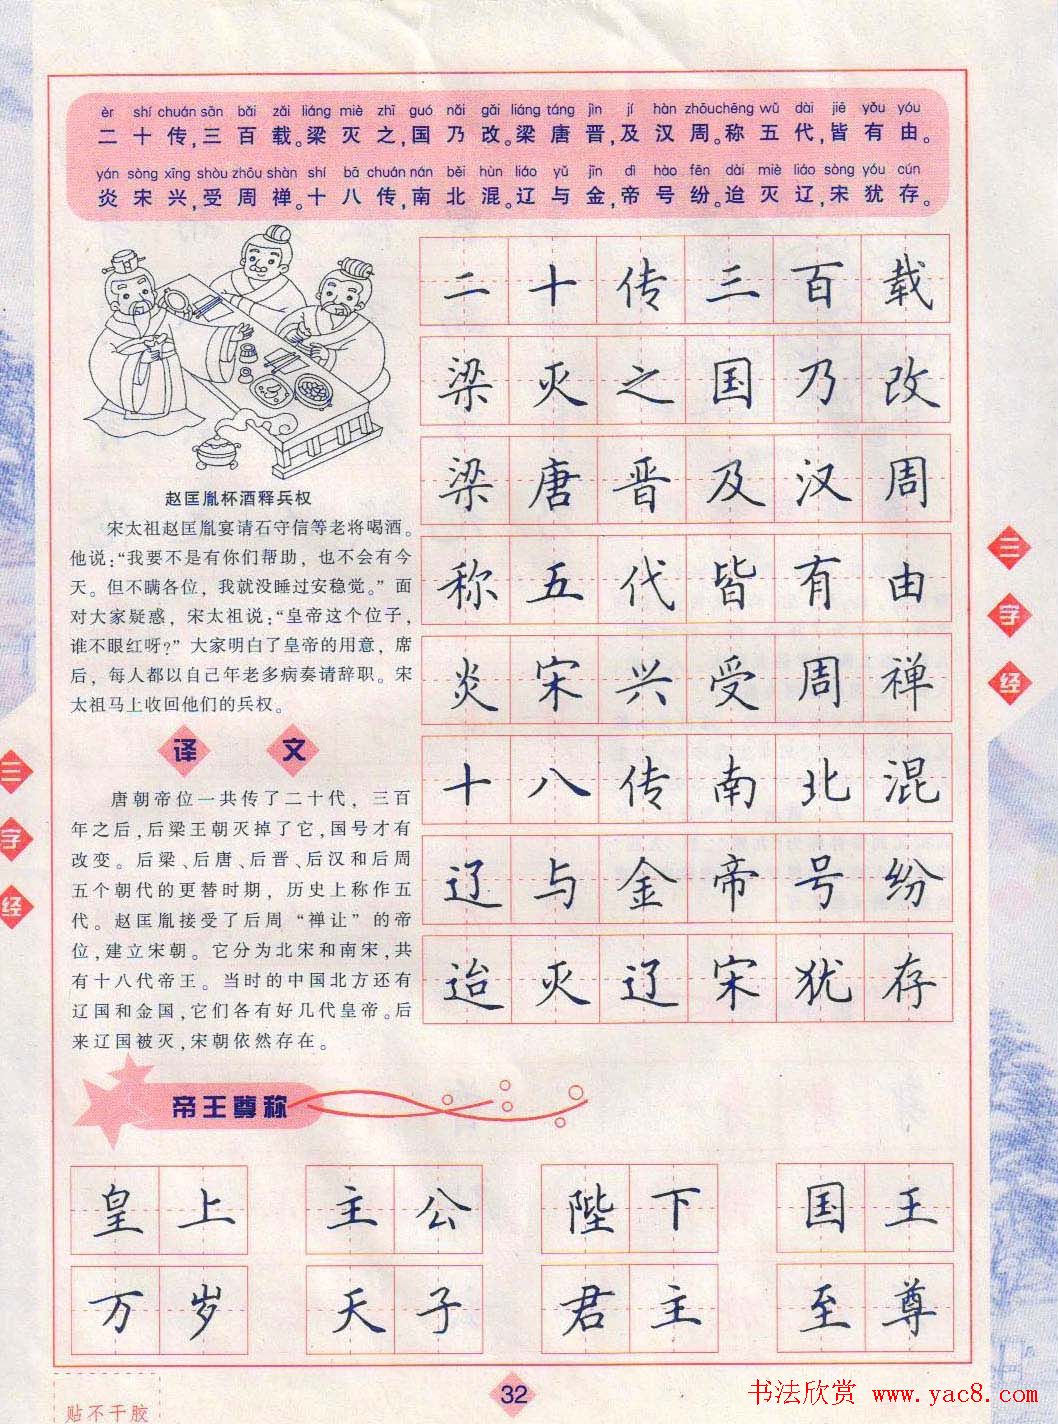 èr shí chuán sān bǎi zǎi liáng miè zhī guó nǎi gǎi liáng táng jìn jí hàn zhōu chēng wǔ dài jiē yǒu yóu
二十传,三百载。梁灭之,国乃改。梁唐晋,及汉周。称五代,皆有由。
yán sòng xīng shòu zhōu shàn shí bā chuán nán běi hùn liáo yǔ jīn dì hào fēn dài miè liáo sòng yóu cún
炎宋兴,受周禅。十八传,南北混。辽与金,帝号纷。迨灭辽,宋犹存。
二十传三百载
梁灭之国乃改
梁唐晋及汉周
称五代皆有由
炎宋兴受周禅
十八传南北混
辽与金帝号纷
迨灭辽宋犹存
赵匡胤杯酒释兵权
宋太祖赵匡胤宴请石守信等老将喝酒。
他说:“我要不是有你们帮助，也不会有今
天。但不瞒各位，我就没睡过安稳觉。”面
对大家疑惑，宋太祖说:“皇帝这个位子,
谁不眼红呀?”大家明白了皇帝的用意，席
后，每人都以自己年老多病奏请辞职。宋
太祖马上收回他们的兵权。
译文
唐朝帝位一共传了二十代，三百
年之后,后梁王朝灭掉了它,国号才有
改变。后梁、后唐、后晋、后汉和后周
五个朝代的更替时期，历史上称作五
代。赵匡胤接受了后周“禅让”的帝
位,建立宋朝。它分为北宋和南宋,共
有十八代帝王。当时的中国北方还有
辽国和金国,它们各有好几代皇帝。后
来辽国被灭,宋朝依然存在。
三字经
三字经
帝王尊称
皇上 主公 陛下 国王
万岁 天子 君主 至尊
32
贴不干胶
书法欣赏 www.yac8.com